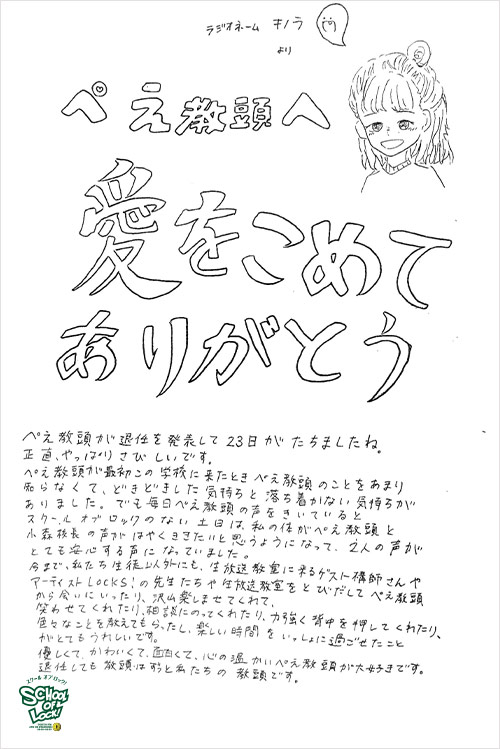 ラジオネーム キノラ
より
ぺえ教頭へ
愛をこめて
ありがとう
ぺえ教頭が退任を発表して23日がたちましたね。
正直、やっぱりさびしいです。
ぺえ教頭が最初この学校に来たときぺえ教頭のことをあまり
知らなくて、どきどきした気持ちと落ち着かない気持ちが
ありました。でも毎日ぺえ教頭の声をきいていると
スクールオブロックのない土日は、私の体がぺえ教頭と
小森校長の声がはやくききたいと思うようになって、2人の声が
とても安心する声になっていました。
今まで、私たち生徒以外にも、生放送教室に来るゲスト講師さんや
アーティストLOCKS!の先生たちや生放送教室をとびだしてぺえ教頭
から会いにいったり、沢山楽しませてくれて、
笑わせてくれたり、相談にのってくれたり、力強く背中を押してくれたり、
色々なことを教えてもらったし、楽しい時間をいっしょに過ごせたこと
がとてもうれしいです。
優しくて、かわいくて、面白くて、心の温かいぺえ教頭が大好きです。
退任しても教頭はずっと私たちの教頭です。
スクールオブロック!
SCHOOL
OF
LOCK!